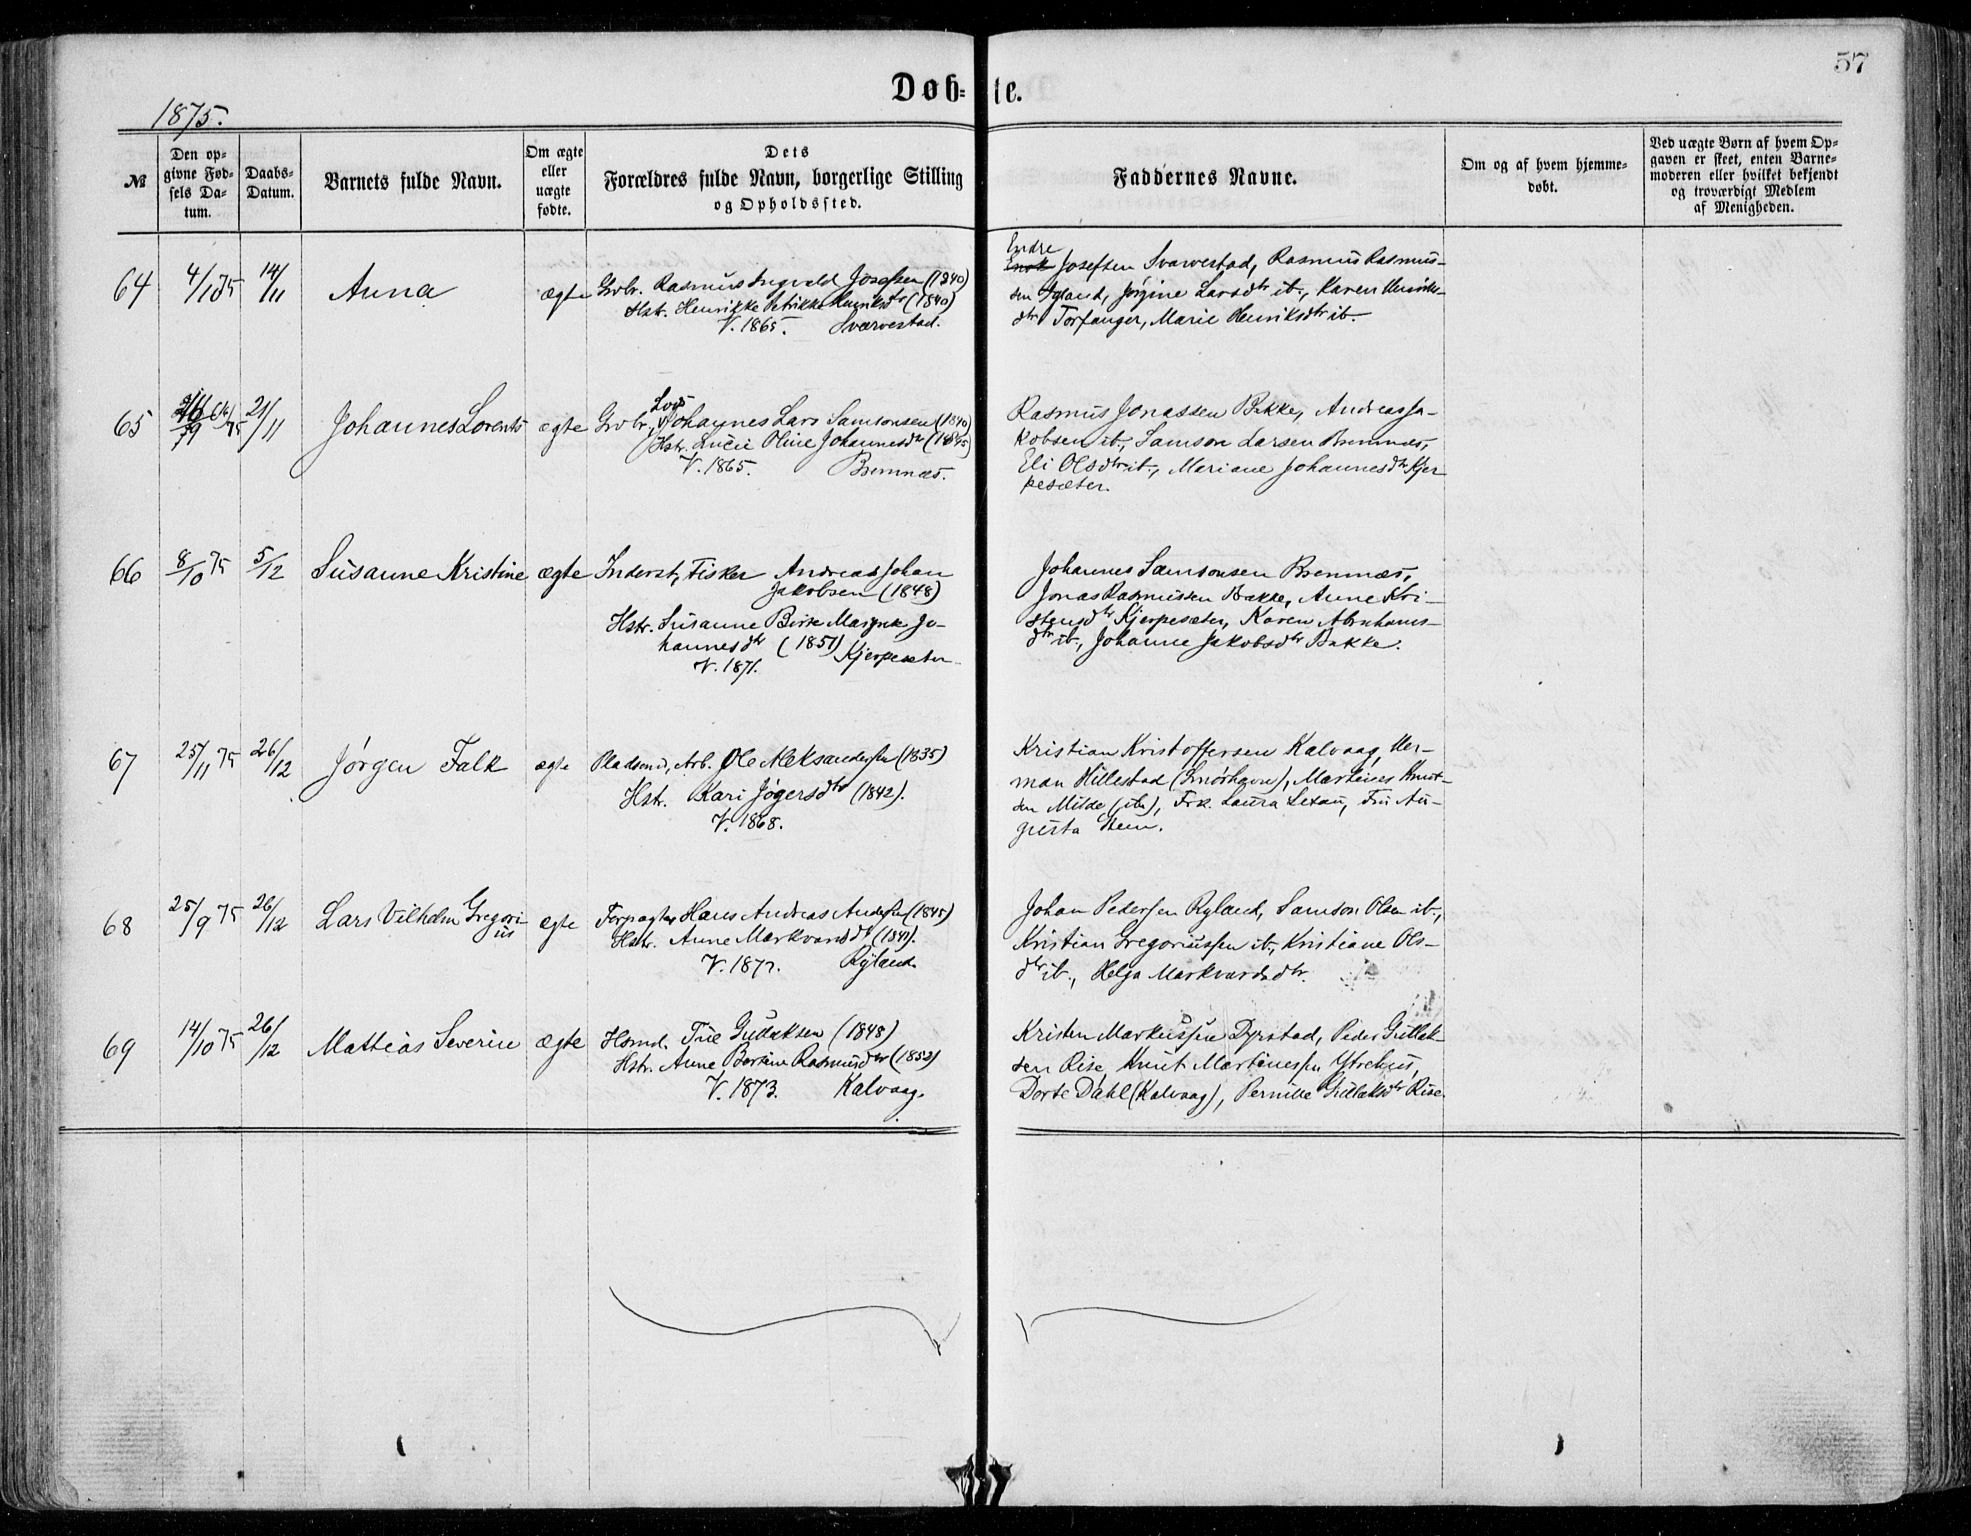 57
Døb= te.
1875.
№
Den op=
givne Fød=
sels Da=
tum.
Daabs=
Datum.
Barnets fulde Navn.
Om ægte
eller
uægte
fødte.
Dets
Forældres fulde Navn, borgerlige Stilling
og Opholdssted.
Faddernes Navne.
Om og af hvem hjemme=
døbt.
Ved uægte Børn af hvem Op=
gaven er skeet, enten Barne=
moderen eller hvilket bekjendt
og troværdigt Medlem
af Menigheden.
64 4/10 75 14/11 Anna ægte Grbr. Rasmus Ingvald Josefsen (1840)
Hstr. Henrikke Petrikke Henriksdtr (1840)
V. 1865. Svarvestad.
Endre
Josefsen Svarvestad, Rasmus Rasmus-
sen Igland, Jørgine Larsdtr ib., Karen Henriks-
dtr Torfanger, Marie Henriksdtr ib.
65 21/11 Johannes Lorents ægte Grbr. Johannes Lars Samsonsen (1840)
Hstr. Lucie Oline Johannesdtr (1845)
V. 1865. Bremnæs.
Rasmus Jonassen Bakke, Andreas Ja-
kobsen ib., Samson Larsen Bremnæs,
Eli Olsdtr ib., Mariane Johannesdtr Kjer
pesæter.
66 8/10 75 5/12 Susanne Kristine ægte Inderst, Fisker Andreas Johan
Jakobsen (1848)
Hstr. Susanne Birte Jo-
hannesdtr (1851) Kjerpesæter
V. 1871.
Johannes Samsonsen Bremnæs,
Jonas Rasmussen Bakke, Anne Kri-
stensdtr Kjerpesæter, Karen Abrahams-
dtr ib., Johanne Jakobsdtr Bakke.
67 25/11 75 26/12 Jørgen Falk ægte Pladsmd, Arb. Ole Aleksandersen (1835)
Hstr. Kari Jøgersdtr (1842).
V. 1868.
Kristian Kristoffersen Kalvaag, Her-
man Hillestad (Smørhavn), Martines Knut-
sen Milde (ib), Frk. Laura Lexau, Fru Au-
gusta
68 25/9 75 26/12 Lars Vilhelm Gregori
us ægte Forpagter Hans Andreas Andersen (1845)
Hstr. Anne Markvardsdtr (1841).
V. 1872. Ryland.
Johan Pedersen Ryland, Samson Olsen ib.,
Kristian Gregoriussen ib., Kristiane Ols-
dtr ib., Helga Markvardsdtr.
69 14/10 75 26/12 Mattias Severin ægte Hsmd. Tue Gullaksen (1848)
Hstr. Anne Bertine Rasmusdtr (1852)
V. 1873. Kalvaag.
Kristen Markussen Dyrstad, Peder Gullak-
sen Rise, Knut Martinessen Ytrehus,
Dorte Dahl (Kalvaag), Pernille Gullaksdtr Rise.